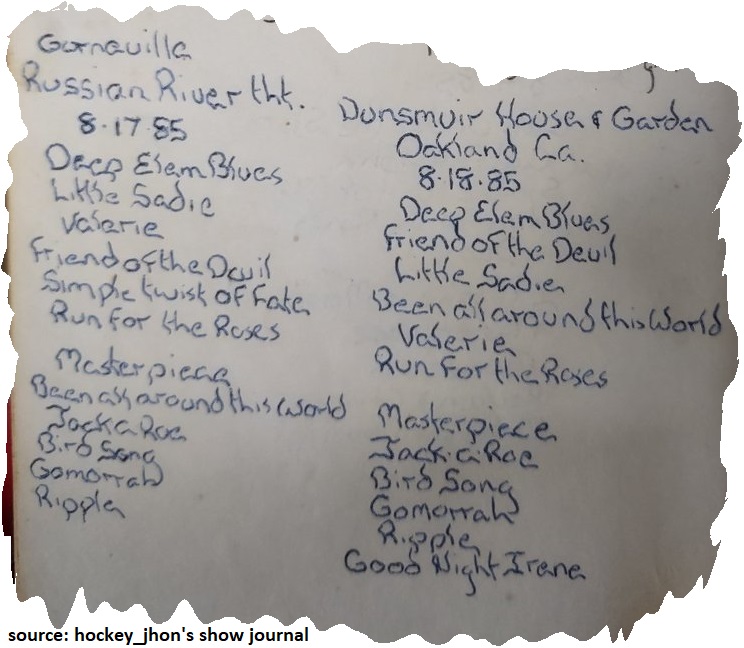 Gurnauilla
Russian River tht.
8.17.85
Deep Elem Blues
Little Sadie
Valerie
Friend of the Devil
Simple twist of Fate
Run for the Roses
Masterpiece
Been all around this World
Jack a Roe
Bird Song
Gomorrah
Ripple
Dunsmuir House & Garden
Oakland Ca.
8.18.85
Deep Elem Blues
Friend of the Devil
Little Sadie
Been all around this World
Valerie
Run for the Roses
Masterpiece
Jack.a.Roe
Bird Song
Gomorrah
Ripple
Good Night Irene
source: hockey_jhon's show journal